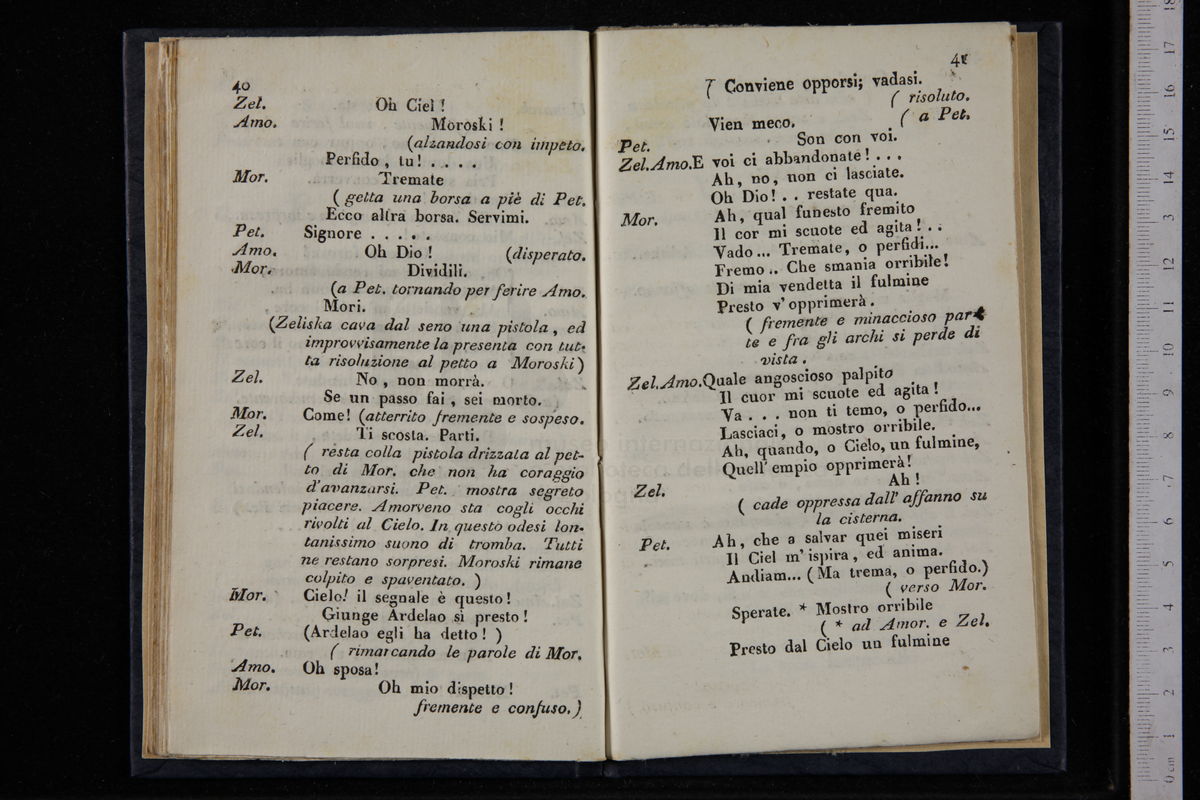 40
Zel. Oh Ciel !
Amo. Moroski !
(alzandosi con impeto.
Perfido , tu! . . . .
Mor. Tremate
( getta una borsa a piè di Pet.
Ecco altra borsa. Servimi.
Pet. Signore . . . . .
Amo. Oh Dio ! (disperato.
Mor. Dividili.
(a Pet. tornando per ferire Amo.
Mori.
(Zeliska cava dal seno una pistola , ed
improvvisamente la presenta con tut-
ta risoluzione al petto a Moroski)
Zel. No , non morrà.
Se un passo fai , sei morto.
Mor. Come! (atterrito fremente e sospeso.
Zel. Ti scosta. Parti.
( resta colla pistola drizzata al pet-
to di Mor. che non ha coraggio
d'avanzarsi. Pet. mostra segreto
piacere. Amorveno sta cogli occhi
rivolti al Cielo. In questo odesi lon-
tanissimo suono di tromba. Tutti
ne restano sorpresi. Moroski rimane
colpito e spaventato. )
Mor. Cielo! il segnale è questo!
Giunge Ardelao sì presto!
Pet. (Ardelao egli ha detto! )
( rimarcando le parole di Mor.
Amo. Oh sposa!
Mor. Oh mio dispetto!
fremente e confuso.)
41
Conviene opporsi; vadasi.
( risoluto.
Vien meco. ( a Pet.
Pet. Son con voi.
Zel.Amo.E voi ci abbandonate! . . .
Ah, no, non ci lasciate.
Oh Dio! . . restate qua.
Mor. Ah, qual funesto fremito
Il cor mi scuote ed agita! . .
Vado ... Tremate, o perfidi...
Fremo .. Che smania orribile!
Di mia vendetta il fulmine
Presto v' opprimerà .
( fremente e minaccioso par-
te e fra gli archi si perde di
vista .
Zel.Amo.Quale angoscioso palpito
Il cuor mi scuote ed agita !
Va . . . non ti temo, o perfido...
Lasciaci, o mostro orribile.
Ah, quando, o Cielo, un fulmine,
Quell' empio opprimerà!
Zel. Ah !
( cade oppressa dall' affanno su
la cisterna.
Pet. Ah, che a salvar quei miseri
Il Ciel m' ispira , ed anima.
Andiam... ( Ma trema, o perfido.)
( verso Mor.
Sperate. * Mostro orribile
( * ad Amor. e Zel.
Presto dal Cielo un fulmine